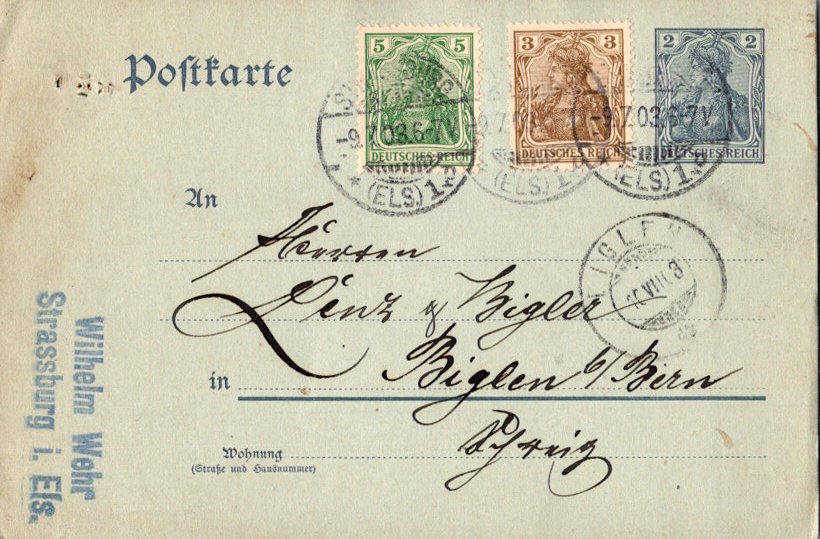 Postkarte
5 5
DEUTSCHES REICH
3 3
DEUTSCHES REICH
2 2
DEUTSCHES REICH
-9.7.03.6-7V
* (ELS) 1.
(ELS) 1.
-9.7.03.6-7V
(ELS) 1.
An
Herren
Lenz & Bigler
in Biglen b/Bern
Schweiz
Wohnung
(Straße und Hausnummer)
BIGLEN
Wilhelm Wehr
Strassburg i. Els.